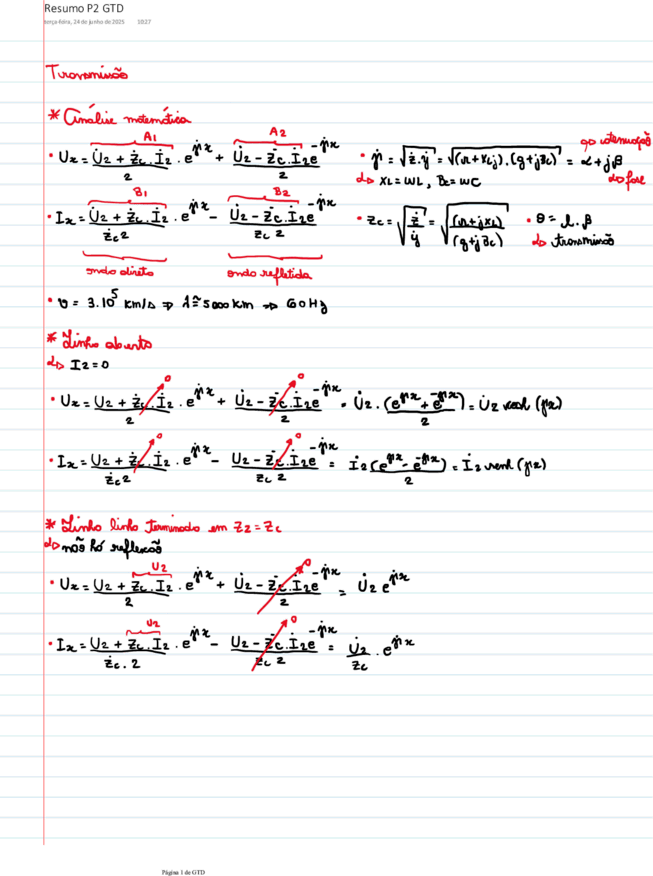 Resumo P2 GTD
terça-feira, 24 de junho de 2025 10:27
Transmissão
* Análise matemática
A1 A2
• Ux = (U̇2 + Żc.İ2)/2 . e^γ̇x + (U̇2 - Żc.İ2)/2 e^-γ̇x • γ̇ = √(ż.ẏ) = √((r+xLj).(g+jBc)) = α + jβ
↳ XL = ωL, Bc = ωC
↳ atenuação
↳ fase
B1 B2
• Ix = (U̇2 + Żc.İ2)/(Żc 2) . e^γ̇x - (U̇2 - Żc.İ2)/(Zc 2) e^-γ̇x • Zc = √(ż/ẏ) = √((r+jxL)/(g+jBc)) • θ = l.β
↳ transmissão
onda direta onda refletida
• v = 3.10^5 km/s ⇒ λ ≅ 5000 km ⇒ 60Hz
* Linha aberta
↳ I2=0
• Ux = (U2 + Żc.İ2)/2 . e^γ̇x + (U̇2 - Żc.İ2)/2 e^-γ̇x = U̇2 . (e^γ̇x + e^-γ̇x)/2 = U̇2 cosh(γx)
0 0
• Ix = (U2 + Żc.İ2)/(Żc 2) . e^γ̇x - (U2 - Żc.İ2)/(Zc 2) e^-γ̇x = İ2 (e^γ̇x - e^-γ̇x)/2 = İ2 senh(γx)
0 0
* Linha linha terminada em Z2 = Zc
↳ não há reflexão
U2
• Ux = (U2 + Żc.İ2)/2 . e^γ̇x + (U̇2 - Żc.İ2)/2 e^-γ̇x = U̇2 e^γ̇x
0
U2
• Ix = (U2 + Żc.İ2)/(Żc . 2) . e^γ̇x - (U2 - Żc.İ2)/(Zc 2) e^-γ̇x = U̇2/Zc . e^γ̇x
0
Página 1 de GTD